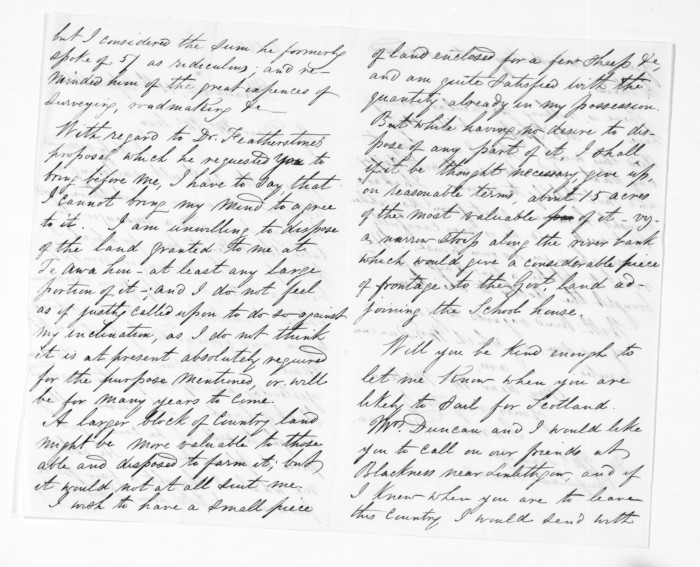 but I considered the sum he formerly
spoke of 5/ as ridiculus; and re-
minded him of the great expences of
surveying, roadmaking &c
With regard to Dr. Featherstone's
proposal which he requested you to
bring before me, I have to say, that
I cannot bring my mind to agree
to it. I am unwilling to dispose
of the land granted to me at
Te Awa hou - at least any large
portion of it -; and I do not feel
as if justly called upon to do so against
my inclination, as I do not think
it is at present absolutely required
for the purpose mentioned, or will
be for many years to come.
A larger block of Country land
might be more valuable to those
able and disposed to farm it; but
it would not at all suit me.
I wish to have a small piece
of land enclosed for a few sheep &c,
and am quite satisfied with the
quantity already in my possession.
But while having no desire to dis-
pose of any part of it, I shall
if it be thought necessary give up,
on reasonable terms, about 15 acres
of the most valuable of it - viz -
a narrow strip along the river bank
which would give a considerable piece
of frontage to the Govt land ad-
joining the School house.
Will you be kind enough to
let me know when you are
likely to sail for Scotland.
Mrs. Duncan and I would like
you to call on our friends at
Blackness near Linlithgow, and if
I knew when you are to leave
this Country I would send with